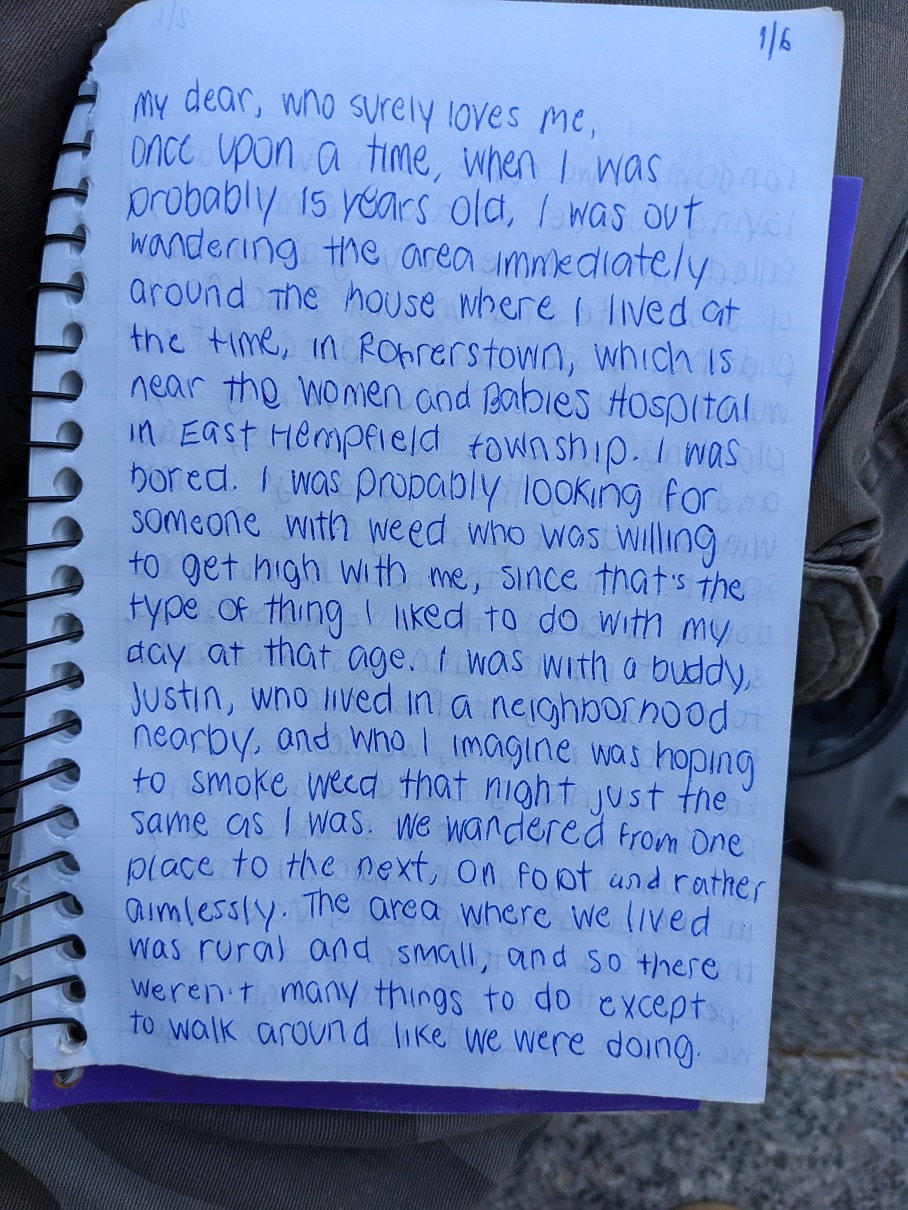 1/6
my dear, who surely loves me,
once upon a time, when I was
probably 15 years old, I was out
wandering the area immediately
around the house where I lived at
the time, in Rohrerstown, which is
near the Women and Babies Hospital
in East Hempfield township. I was
bored. I was probably looking for
someone with weed who was willing
to get high with me, since that's the
type of thing I liked to do with my
day at that age. I was with a buddy,
Justin, who lived in a neighborhood
nearby, and who I imagine was hoping
to smoke weed that night just the
same as I was. We wandered from one
place to the next, on foot and rather
aimlessly. The area where we lived
was rural and small, and so there
weren't many things to do except
to walk around like we were doing.